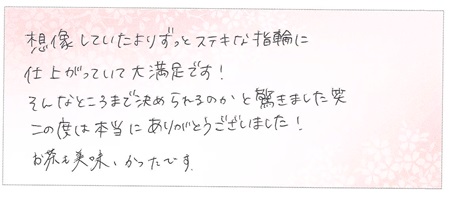 想像していたよりずっとステキな指輪に
仕上がっていて大満足です!
そんなところまで決められるのかと驚きました笑
この度は本当にありがとうございました!
お茶も美味しかったです